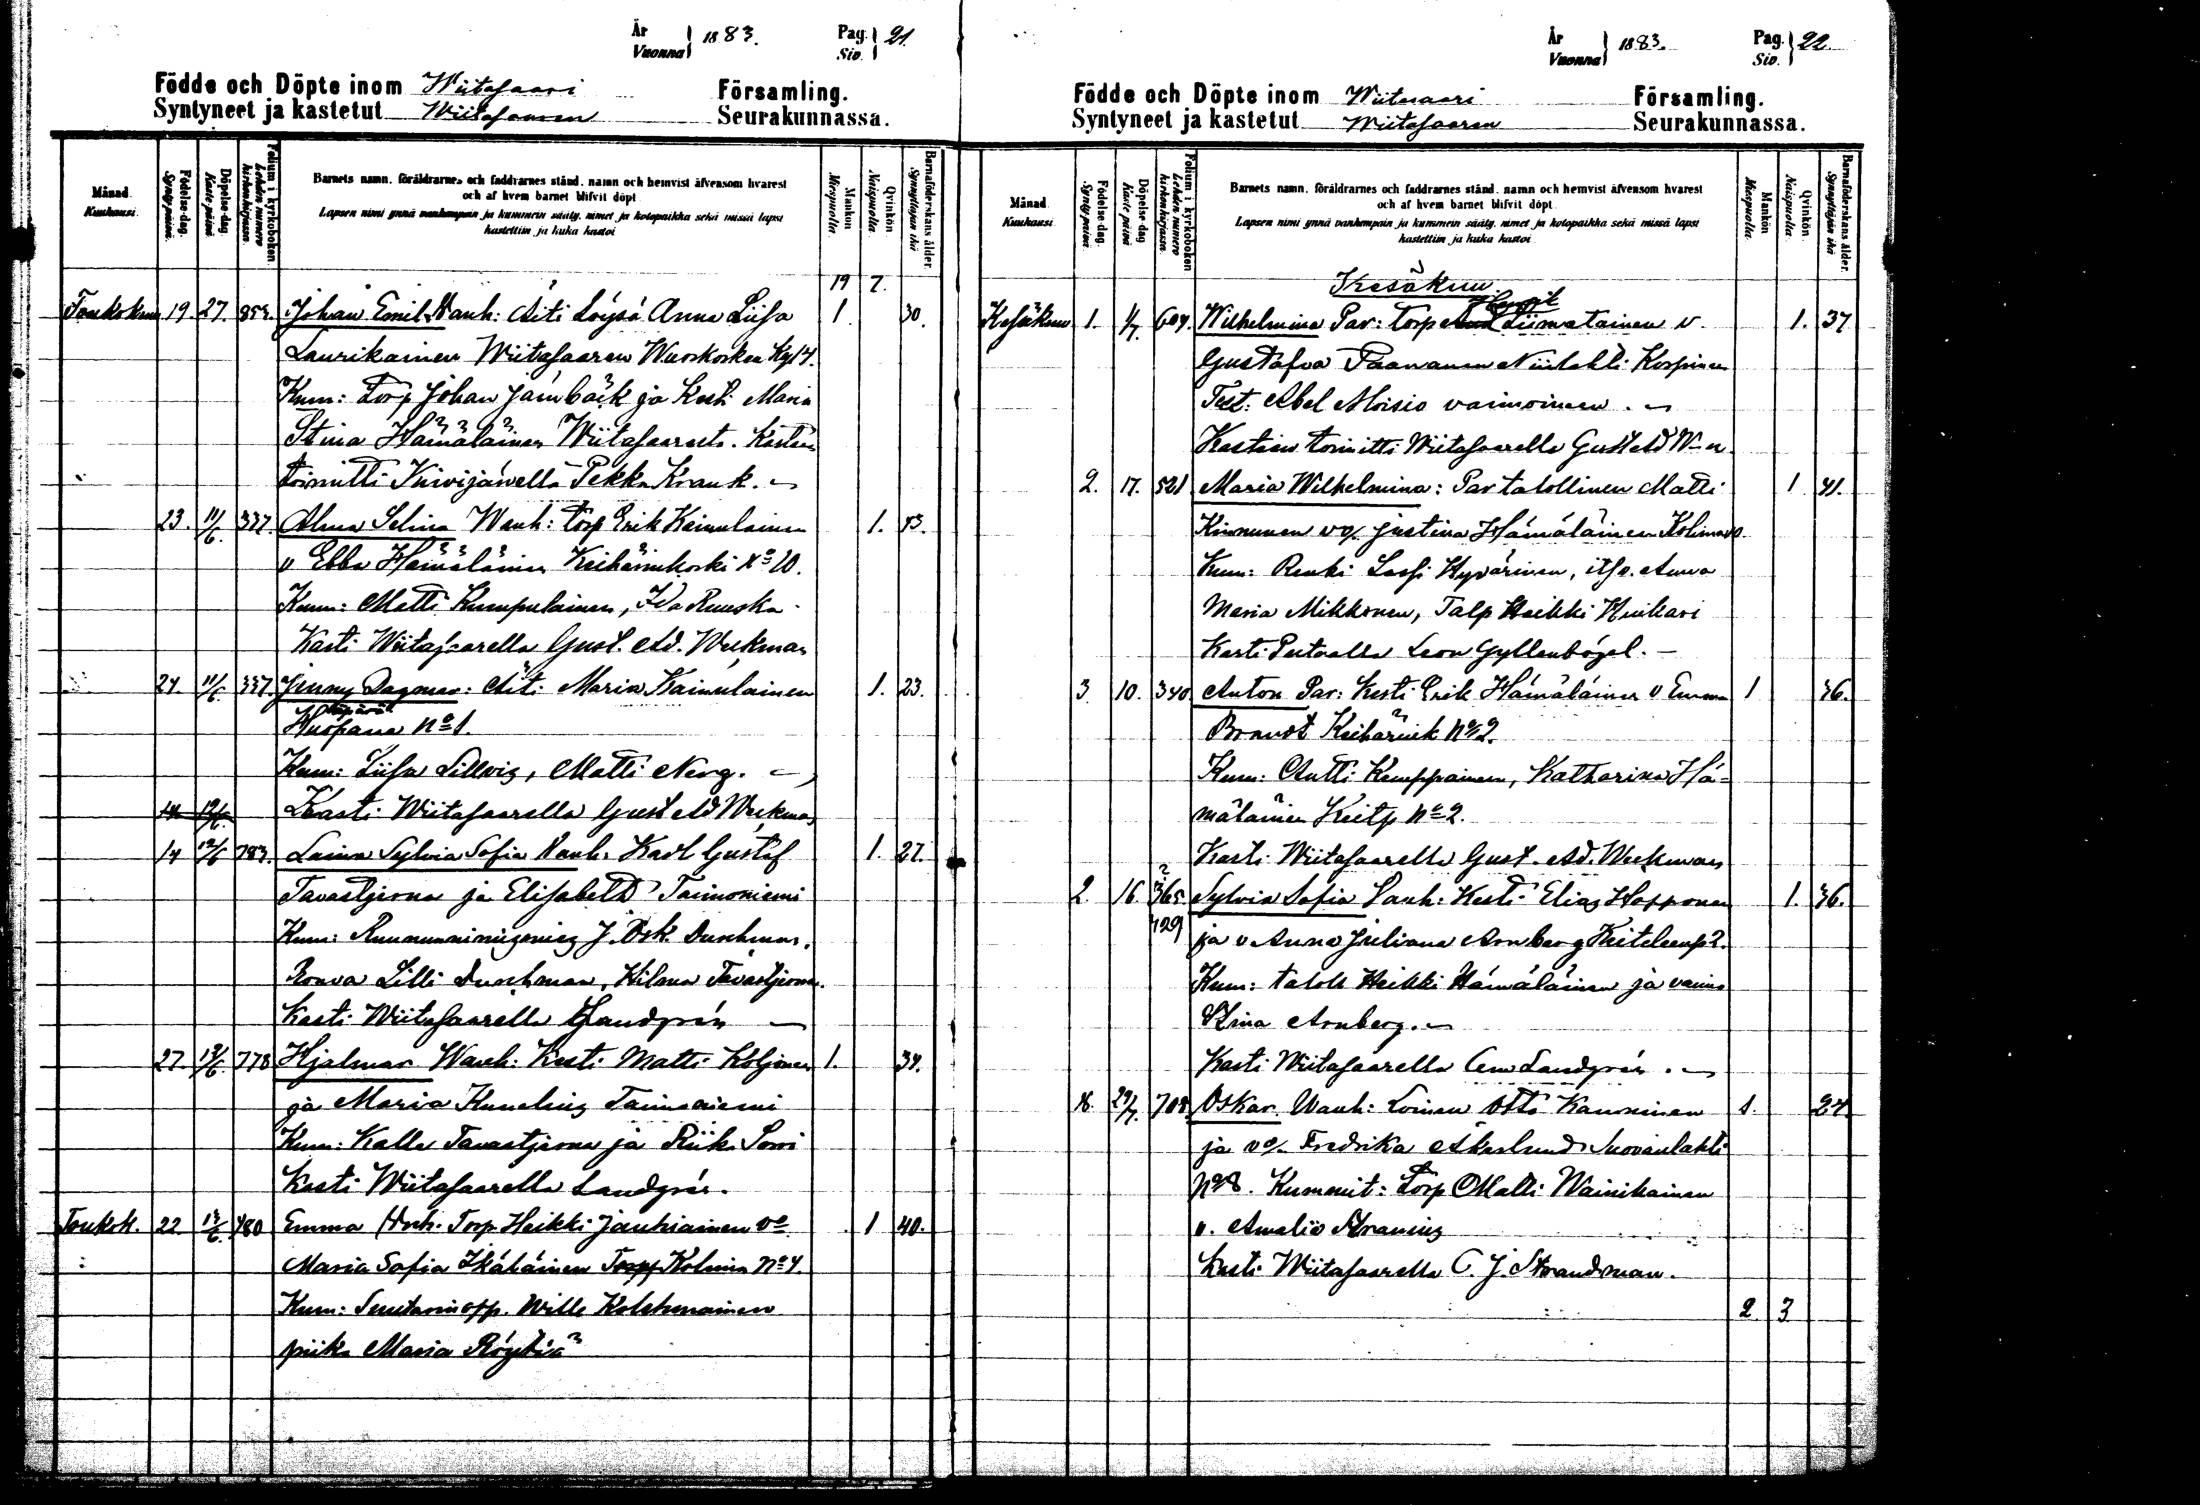 År
Vuonna 1883.
Pag.
Siv. 21.
Födde och Döpte inom Wiitasaari Församling.
Syntyneet ja kastetut Wiitasaaren Seurakunnassa.
Månad Kuukausi
Födelse-dag. Synty-päivä.
Döpelse-dag. Kaste-päivä
Folium i kyrkoboken Lehden numero kirkonkirjassa.
Barnets namn, föräldrarnes och faddrarnes stånd, namn och hemvist äfvensom hvarest
och af hvem barnet blifvit döpt
Lapsen nimi ynnä vanhempain ja kummein sääty, nimet ja kotopaikka sekä missä lapsi
kastettiin ja kuka kastoi
Mankön Miespuolia.
Qvinkön. Naispuolia.
Barnaföderskans ålder. Synnyttäjän ikä
19 7.
Toukokuu 19. 27. 859. Johan Emil Wanh: Äiti Löysä Anna Liisa 1. 30.
Laurikainen Wiitasaaren Wuoskoskea
Kum: Torp Johan Järnbäck ja Kesti Maria
Stina Hämäläinen Wiitasaaresta. Kasteen
toimitti Kivijärvellä Pekka Krank.
23. 11/6. 337. Alma Selina Wanh: Torp Erik Kainulainen 1. 43.
v Ebba Hämäläinen Keihärinkoski No 10.
Kum: Matti Kumpulainen, Ida Ruuska
Kasti Wiitasaarella Gust. Ad. Weckman
24. 11/6. 337. Jenny Dagmar: Äiti Maria Kainulainen 1. 23.
Huopana No 1.
Kum: Liisa Lillvig, Matti Nerg.
14 12/6. Kasti Wiitasaarella Gust Ad Weckman
14 12/6 783. Laina Sylvia Sofia Wanh. Karl Gustaf 1. 27.
Tavastjerna ja Elisabeth Taimoniemi
Kum: J. Osk. Durchman,
Rouva Lilli Durchman, Hilma Tavastjerna.
Kasti Wiitasaarella Landgrén
27. 12/6. 778 Hjalmar Wanh: Kesti Matti Koljonen 1. 34.
ja Maria Taimoniemi
Kum: Kalle Tavastjerna ja Riika Sorri
Kasti Wiitasaarella Landgrén.
Toukok. 22. 12/6 480 Emma Wnh. Torp. Heikki Jauhiainen vo 1 40.
Maria Sofia Ikäläinen Kolima No 4.
Kum: Wille Kolehmainen
piika Maria Röytiä
År
Vuonna 1883.
Pag.
Siv. 22.
Födde och Döpte inom Wiitasaari Församling.
Syntyneet ja kastetut Wiitasaaren Seurakunnassa.
Månad Kuukausi
Födelse-dag. Synty-päivä
Döpelse-dag Kaste-päivä
Folium i kyrkoboken Lehden numero kirkonkirjassa.
Barnets namn, föräldrarnes och faddrarnes stånd, namn och hemvist äfvensom hvarest
och af hvem barnet blifvit döpt.
Lapsen nimi ynnä vanhempain ja kummein sääty, nimet ja kotopaikka sekä missä lapsi
kastettiin ja kuka kastoi
Mankön Miespuolia.
Qvinkön. Naispuolia.
Barnaföderskans ålder. Synnyttäjän ikä
Kesäkuu.
Kesäkuu 1. 1/7. 604. Wilhelmina Par: Torp Liimatainen v. 1. 37
Gustafva Paananen Niinilahti Korpinen
Test: Abel Aloisio vaimoineen.
Kasteen toimitti Wiitasaarella Gust Ad W-n.
2. 17. 521 Maria Wilhelmina: Par talollinen Matti 1 41.
Kinnunen vo Justina Hämäläinen Kolima 10.
Kum: Renki Lassi Hyvärinen, Anna
Maria Mikkonen, Talp Heikki Huikari
Kasti Leon Gyllenbögel.
3 10. 340 Anton Par: Kesti Erik Hämäläinen v Emma 1 36.
Brandt Keihärink No 2.
Kum: Antti Kemppainen, Katharina Hä-
mäläinen Keitp No 2.
Kasti Wiitasaarella Gust. Ad. Weckman
2. 16 365 Sylvia Sofia Vanh: Kesti Elias Hopponen 1. 36.
729 ja v Anna Juliana Arnberg Keitelenp 2.
Kum: taloll Heikki Hämäläinen ja vaimo
Stina Arnberg.
Kasti Wiitasaarella Landgrén.
16. 29/7. 708. Oskar. Wanh: Loinen Otto Kauroninen 1. 24
ja vo Fredrika Åkerlund Suovanlahti
No 8. Kummit: Torp Matti Wainikainen
v. Amalia
Kasti Wiitasaarella C. J. Strandman.
2 3